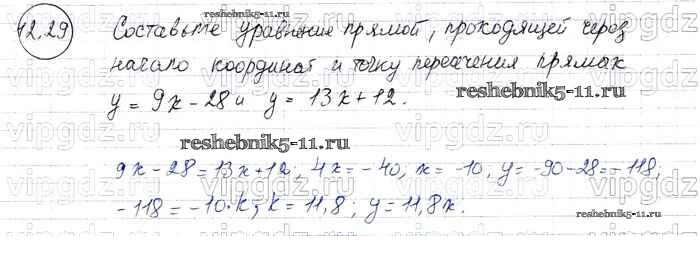 reshebnik5-11.ru
12.29 Составьте уравнение прямой, проходящей через
начало координат и точку пересечения прямых
y = 9x - 28 и y = 13x + 12.
reshebnik5-11.ru
reshebnik5-11.ru
9x - 28 = 13x + 12; 4x = -40; x = -10, y = -90 - 28 = -118;
-118 = -10·k; k = 11,8; y = 11,8x.
reshebnik5-11.ru
vipgdz